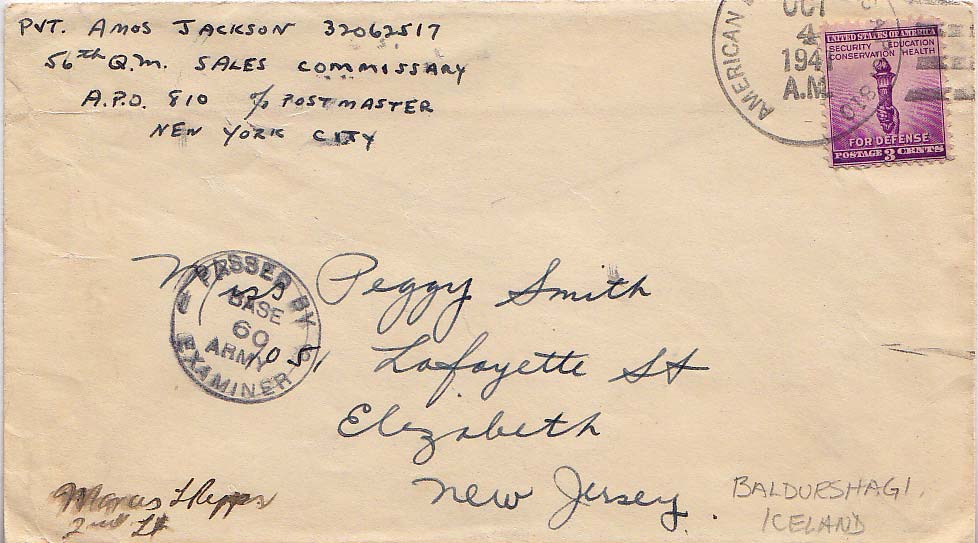 PVT. AMOS JACKSON 32062517
56th Q.M. SALES COMMISSARY
A.P.O. 810 c/o POSTMASTER
NEW YORK CITY
AMERICAN
OCT
4
1941
A.M.
810
UNITED STATES OF AMERICA
SECURITY EDUCATION
CONSERVATION HEALTH
FOR DEFENSE
POSTAGE 3 CENTS
PASSED BY
BASE
60
ARMY
EXAMINER
Miss Peggy Smith
1051 Lafayette St
Elizabeth
New Jersey.
Marcus
2nd Lt
BALDURSHAGI,
ICELAND